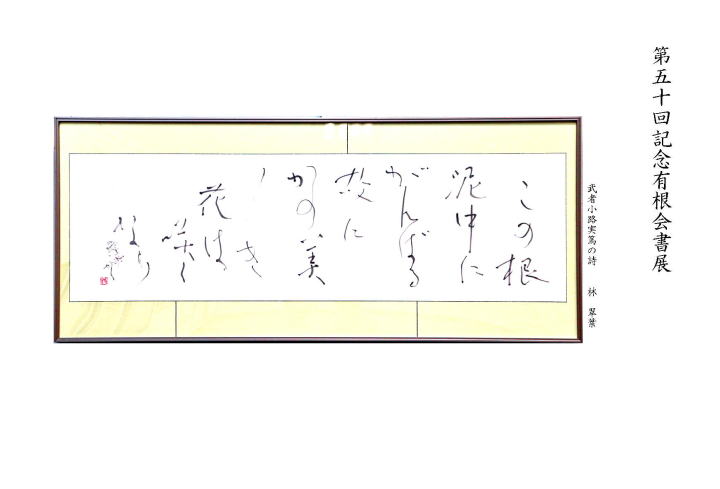 第五十回記念有根会書展
武者小路実篤の詩　林　翠葉
この根
泥中に
がんばる
故に
かの美
しき
花は
咲く
なり